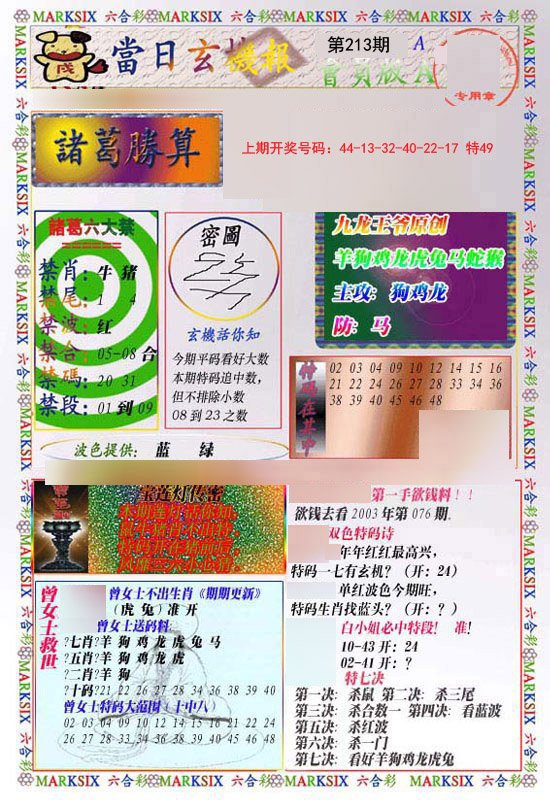 MARKSIX 六合彩 MARKSIX 六合彩 MARKSIX 六合彩 MARKSIX 六合彩
當日玄機報
第213期 A
會員版A
专用章
諸葛勝算
上期开奖号码：44-13-32-40-22-17 特49
諸葛六大禁
禁肖：牛 猪
禁尾：1 4
禁波：红
禁合：05-08 合
禁碼：20 31
禁段：01 到 09
密圖
玄機話你知
今期平码看好大数
本期特码追中数，
但不排除小数
08 到 23 之数
九龙王爷原创
羊狗鸡龙虎兔马蛇猴
主攻：狗鸡龙
防：马
特码在其中
02 03 04 09 10 14 15 16
21 22 24 27 28 33 34 36
38 39 40 45 46 48
波色提供： 蓝 绿
宝莲灯传密
曾女士救世
曾女士不出生肖《期期更新》
（虎 兔）准 开
曾女士送码料:
?七肖?羊 狗 鸡 龙 虎 兔 马
?五肖?羊 狗 鸡 龙 虎
?二肖?羊 狗
?十码?21 22 26 27 28 34 36 38 39 40
曾女士特码大范围（十中八）
02 03 04 09 10 12 14 15 16 21 22 24
26 27 28 33 34 36 38 39 40 45 46 48
第一手欲钱料！！
欲钱去看 2003 年第 076 期.
双色特码诗
年年红红最高兴，
特码一七有玄机？（开：24）
单红波色今期旺，
特码生肖找蓝头？（开：？）
白小姐必中特段！ 准！
10-43 开：24
02-41 开：？
特七决
第一决：杀鼠 第二决：杀三尾
第三决：杀合数一 第四决：看蓝波
第五决：杀红波
第六决：杀一门
第七决：看好羊狗鸡龙虎兔
MARKSIX 六合彩 MARKSIX 六合彩 MARKSIX 六合彩 MARKSIX 六合彩